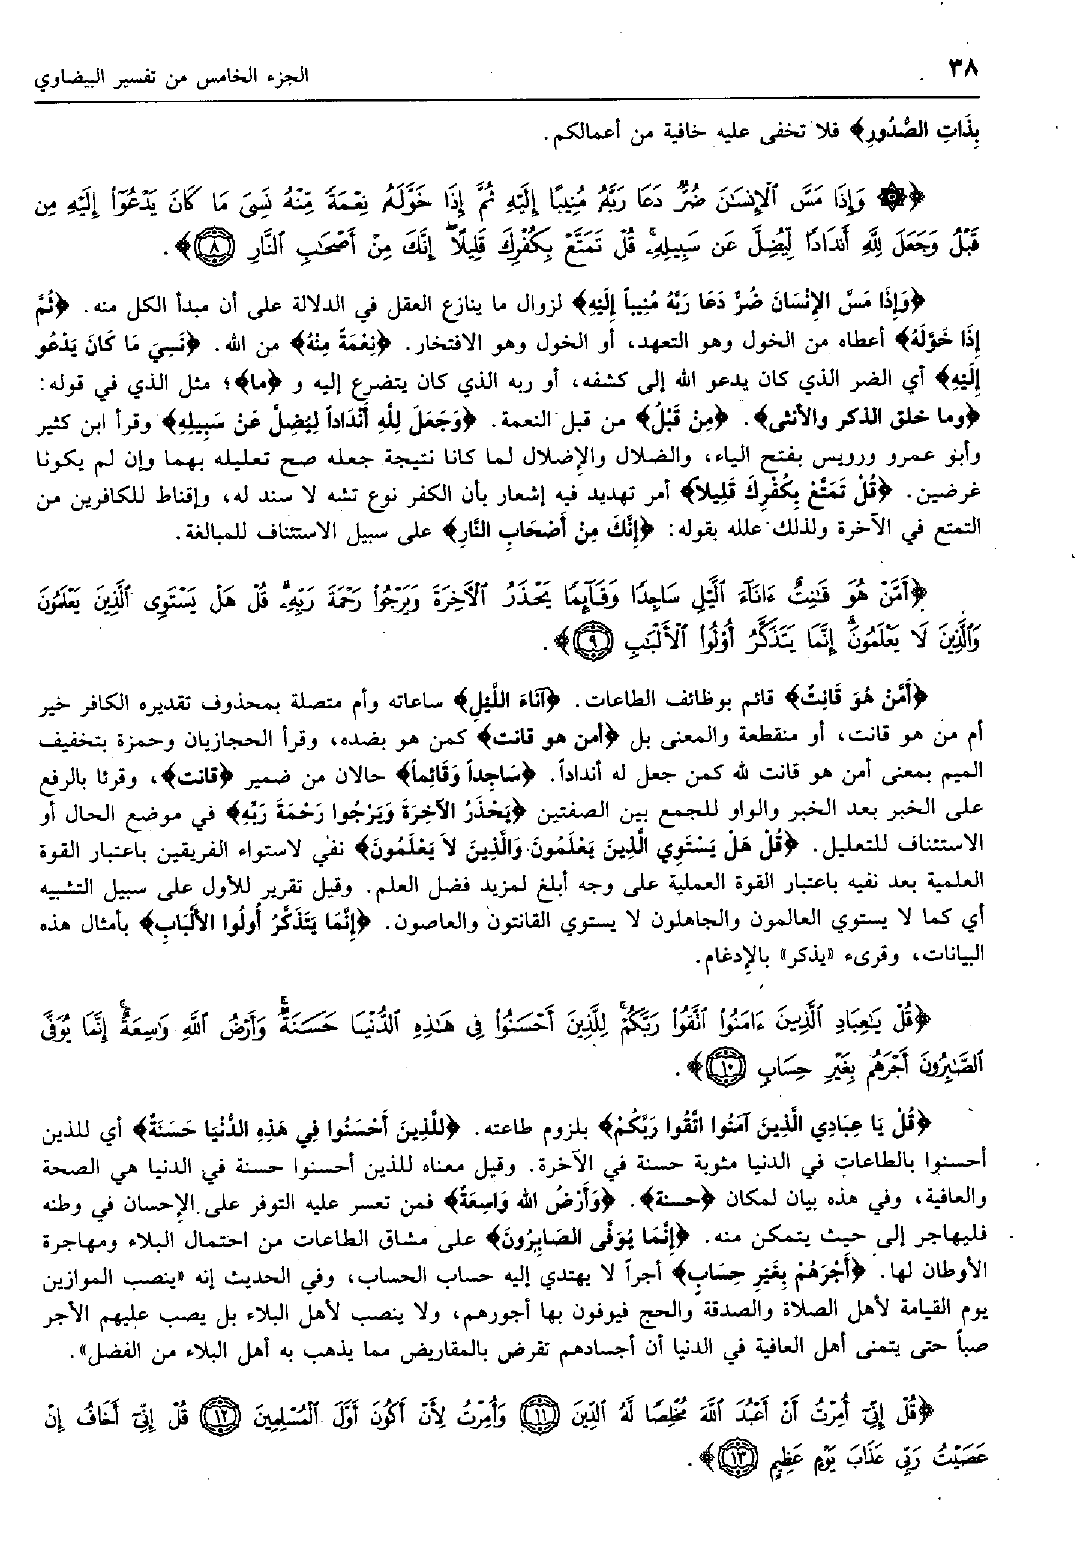 ٣٨
الجزء الخامس من تفسير البيضاوي
بِذَاتِ الصُّدُورِ﴾ فلا تخفى عليه خافية من أعمالكم.
﴿۞ وَإِذَا مَسَّ ٱلْإِنسَٰنَ ضُرٌّ دَعَا رَبَّهُۥ مُنِيبًا إِلَيْهِ ثُمَّ إِذَا خَوَّلَهُۥ نِعْمَةً مِّنْهُ نَسِىَ مَا كَانَ يَدْعُوٓا۟ إِلَيْهِ مِن
قَبْلُ وَجَعَلَ لِلَّهِ أَندَادًا لِّيُضِلَّ عَن سَبِيلِهِۦ ۚ قُلْ تَمَتَّعْ بِكُفْرِكَ قَلِيلًا ۖ إِنَّكَ مِنْ أَصْحَٰبِ ٱلنَّارِ ﴿٨﴾﴾.
﴿وَإِذَا مَسَّ الإِنْسَانَ ضُرٌّ دَعَا رَبَّهُ مُنِيباً إِلَيْهِ﴾ لزوال ما ينازع العقل في الدلالة على أن مبدأ الكل منه. ﴿ثُمَّ
إِذَا خَوَّلَهُ﴾ أعطاه من الخول وهو التعهد، أو الخول وهو الافتخار. ﴿نِعْمَةً مِنْهُ﴾ من الله. ﴿نَسِيَ مَا كَانَ يَدْعُو
إِلَيْهِ﴾ أي الضر الذي كان يدعو الله إلى كشفه، أو ربه الذي كان يتضرع إليه و ﴿ما﴾؛ مثل الذي في قوله:
﴿وما خلق الذكر والأنثى﴾. ﴿مِنْ قَبْلُ﴾ من قبل النعمة. ﴿وَجَعَلَ لِلَّهِ أَنْدَاداً لِيُضِلَّ عَنْ سَبِيلِهِ﴾ وقرأ ابن كثير
وأبو عمرو ورويس بفتح الياء، والضلال والإضلال لما كانا نتيجة جعله صح تعليله بهما وإن لم يكونا
غرضين. ﴿قُلْ تَمَتَّعْ بِكُفْرِكَ قَلِيلاً﴾ أمر تهديد فيه إشعار بأن الكفر نوع تشه لا سند له، وإقناط للكافرين من
التمتع في الآخرة ولذلك علله بقوله: ﴿إِنَّكَ مِنْ أَصْحَابِ النَّارِ﴾ على سبيل الاستئناف للمبالغة.
﴿أَمَّنْ هُوَ قَٰنِتٌ ءَانَآءَ ٱلَّيْلِ سَاجِدًا وَقَآئِمًا يَحْذَرُ ٱلْءَاخِرَةَ وَيَرْجُوا۟ رَحْمَةَ رَبِّهِۦ ۗ قُلْ هَلْ يَسْتَوِى ٱلَّذِينَ يَعْلَمُونَ
وَٱلَّذِينَ لَا يَعْلَمُونَ ۗ إِنَّمَا يَتَذَكَّرُ أُو۟لُوا۟ ٱلْأَلْبَٰبِ ﴿٩﴾﴾.
﴿أَمَّنْ هُوَ قَانِتٌ﴾ قائم بوظائف الطاعات. ﴿آنَاءَ اللَّيْلِ﴾ ساعاته وأم متصلة بمحذوف تقديره الكافر خير
أم من هو قانت، أو منقطعة والمعنى بل ﴿أمن هو قانت﴾ كمن هو بضده، وقرأ الحجازيان وحمزة بتخفيف
الميم بمعنى أمن هو قانت لله كمن جعل له أنداداً. ﴿سَاجِداً وَقَائِماً﴾ حالان من ضمير ﴿قانت﴾، وقرئا بالرفع
على الخبر بعد الخبر والواو للجمع بين الصفتين ﴿يَحْذَرُ الآخِرَةَ وَيَرْجُوا رَحْمَةَ رَبِّهِ﴾ في موضع الحال أو
الاستئناف للتعليل. ﴿قُلْ هَلْ يَسْتَوِي الَّذِينَ يَعْلَمُونَ وَالَّذِينَ لاَ يَعْلَمُونَ﴾ نفي لاستواء الفريقين باعتبار القوة
العلمية بعد نفيه باعتبار القوة العملية على وجه أبلغ لمزيد فضل العلم. وقيل تقرير للأول على سبيل التشبيه
أي كما لا يستوي العالمون والجاهلون لا يستوي القانتون والعاصون. ﴿إِنَّمَا يَتَذَكَّرُ أُولُوا الأَلْبَابِ﴾ بأمثال هذه
البيانات، وقرىء «يذكر» بالإدغام.
﴿قُلْ يَٰعِبَادِ ٱلَّذِينَ ءَامَنُوا۟ ٱتَّقُوا۟ رَبَّكُمْ ۚ لِلَّذِينَ أَحْسَنُوا۟ فِى هَٰذِهِ ٱلدُّنْيَا حَسَنَةٌ ۗ وَأَرْضُ ٱللَّهِ وَٰسِعَةٌ ۗ إِنَّمَا يُوَفَّى
ٱلصَّٰبِرُونَ أَجْرَهُم بِغَيْرِ حِسَابٍ ﴿١٠﴾﴾.
﴿قُلْ يَا عِبَادِي الَّذِينَ آمَنُوا اتَّقُوا رَبَّكُمْ﴾ بلزوم طاعته. ﴿لِلَّذِينَ أَحْسَنُوا فِي هَذِهِ الدُّنْيَا حَسَنَةٌ﴾ أي للذين
أحسنوا بالطاعات في الدنيا مثوبة حسنة في الآخرة. وقيل معناه للذين أحسنوا حسنة في الدنيا هي الصحة
والعافية، وفي هذه بيان لمكان ﴿حسنة﴾. ﴿وَأَرْضُ الله وَاسِعَةٌ﴾ فمن تعسر عليه التوفر على الإحسان في وطنه
فليهاجر إلى حيث يتمكن منه. ﴿إِنَّمَا يُوَفَّى الصَابِرُونَ﴾ على مشاق الطاعات من احتمال البلاء ومهاجرة
الأوطان لها. ﴿أَجْرَهُمْ بِغَيْرِ حِسَابٍ﴾ أجراً لا يهتدي إليه حساب الحساب، وفي الحديث إنه «ينصب الموازين
يوم القيامة لأهل الصلاة والصدقة والحج فيوفون بها أجورهم، ولا ينصب لأهل البلاء بل يصب عليهم الأجر
صباً حتى يتمنى أهل العافية في الدنيا أن أجسادهم تقرض بالمقاريض مما يذهب به أهل البلاء من الفضل».
﴿قُلْ إِنِّىٓ أُمِرْتُ أَنْ أَعْبُدَ ٱللَّهَ مُخْلِصًا لَّهُ ٱلدِّينَ ﴿١١﴾ وَأُمِرْتُ لِأَنْ أَكُونَ أَوَّلَ ٱلْمُسْلِمِينَ ﴿١٢﴾ قُلْ إِنِّىٓ أَخَافُ إِنْ
عَصَيْتُ رَبِّى عَذَابَ يَوْمٍ عَظِيمٍ ﴿١٣﴾﴾.